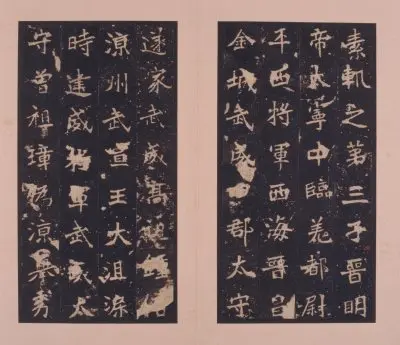 素軌之第三子晉明
帝太寧中臨羌都尉
平西將軍西海晉昌
金城武威郡太守
遂家武威高
涼州武宣王大沮渠
時建威將軍武威太
守曾祖璋偽涼舉秀